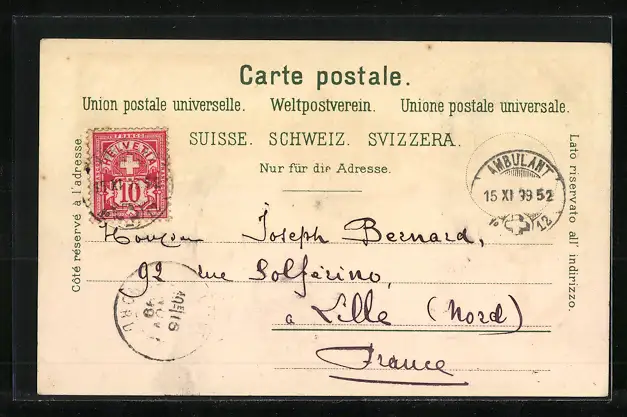 Carte postale.
Union postale universelle. Weltpostverein. Unione postale universale.
SUISSE. SCHWEIZ. SVIZZERA.
Nur für die Adresse.
Côté réservé à l'adresse.
Lato riservato all' indirizzo.
FRANCO
HELVETIA
10
AMBULANT
15 XI 99 52
12
Joseph Bernard,
92 rue Solférino,
à Lille (Nord)
France
NORD